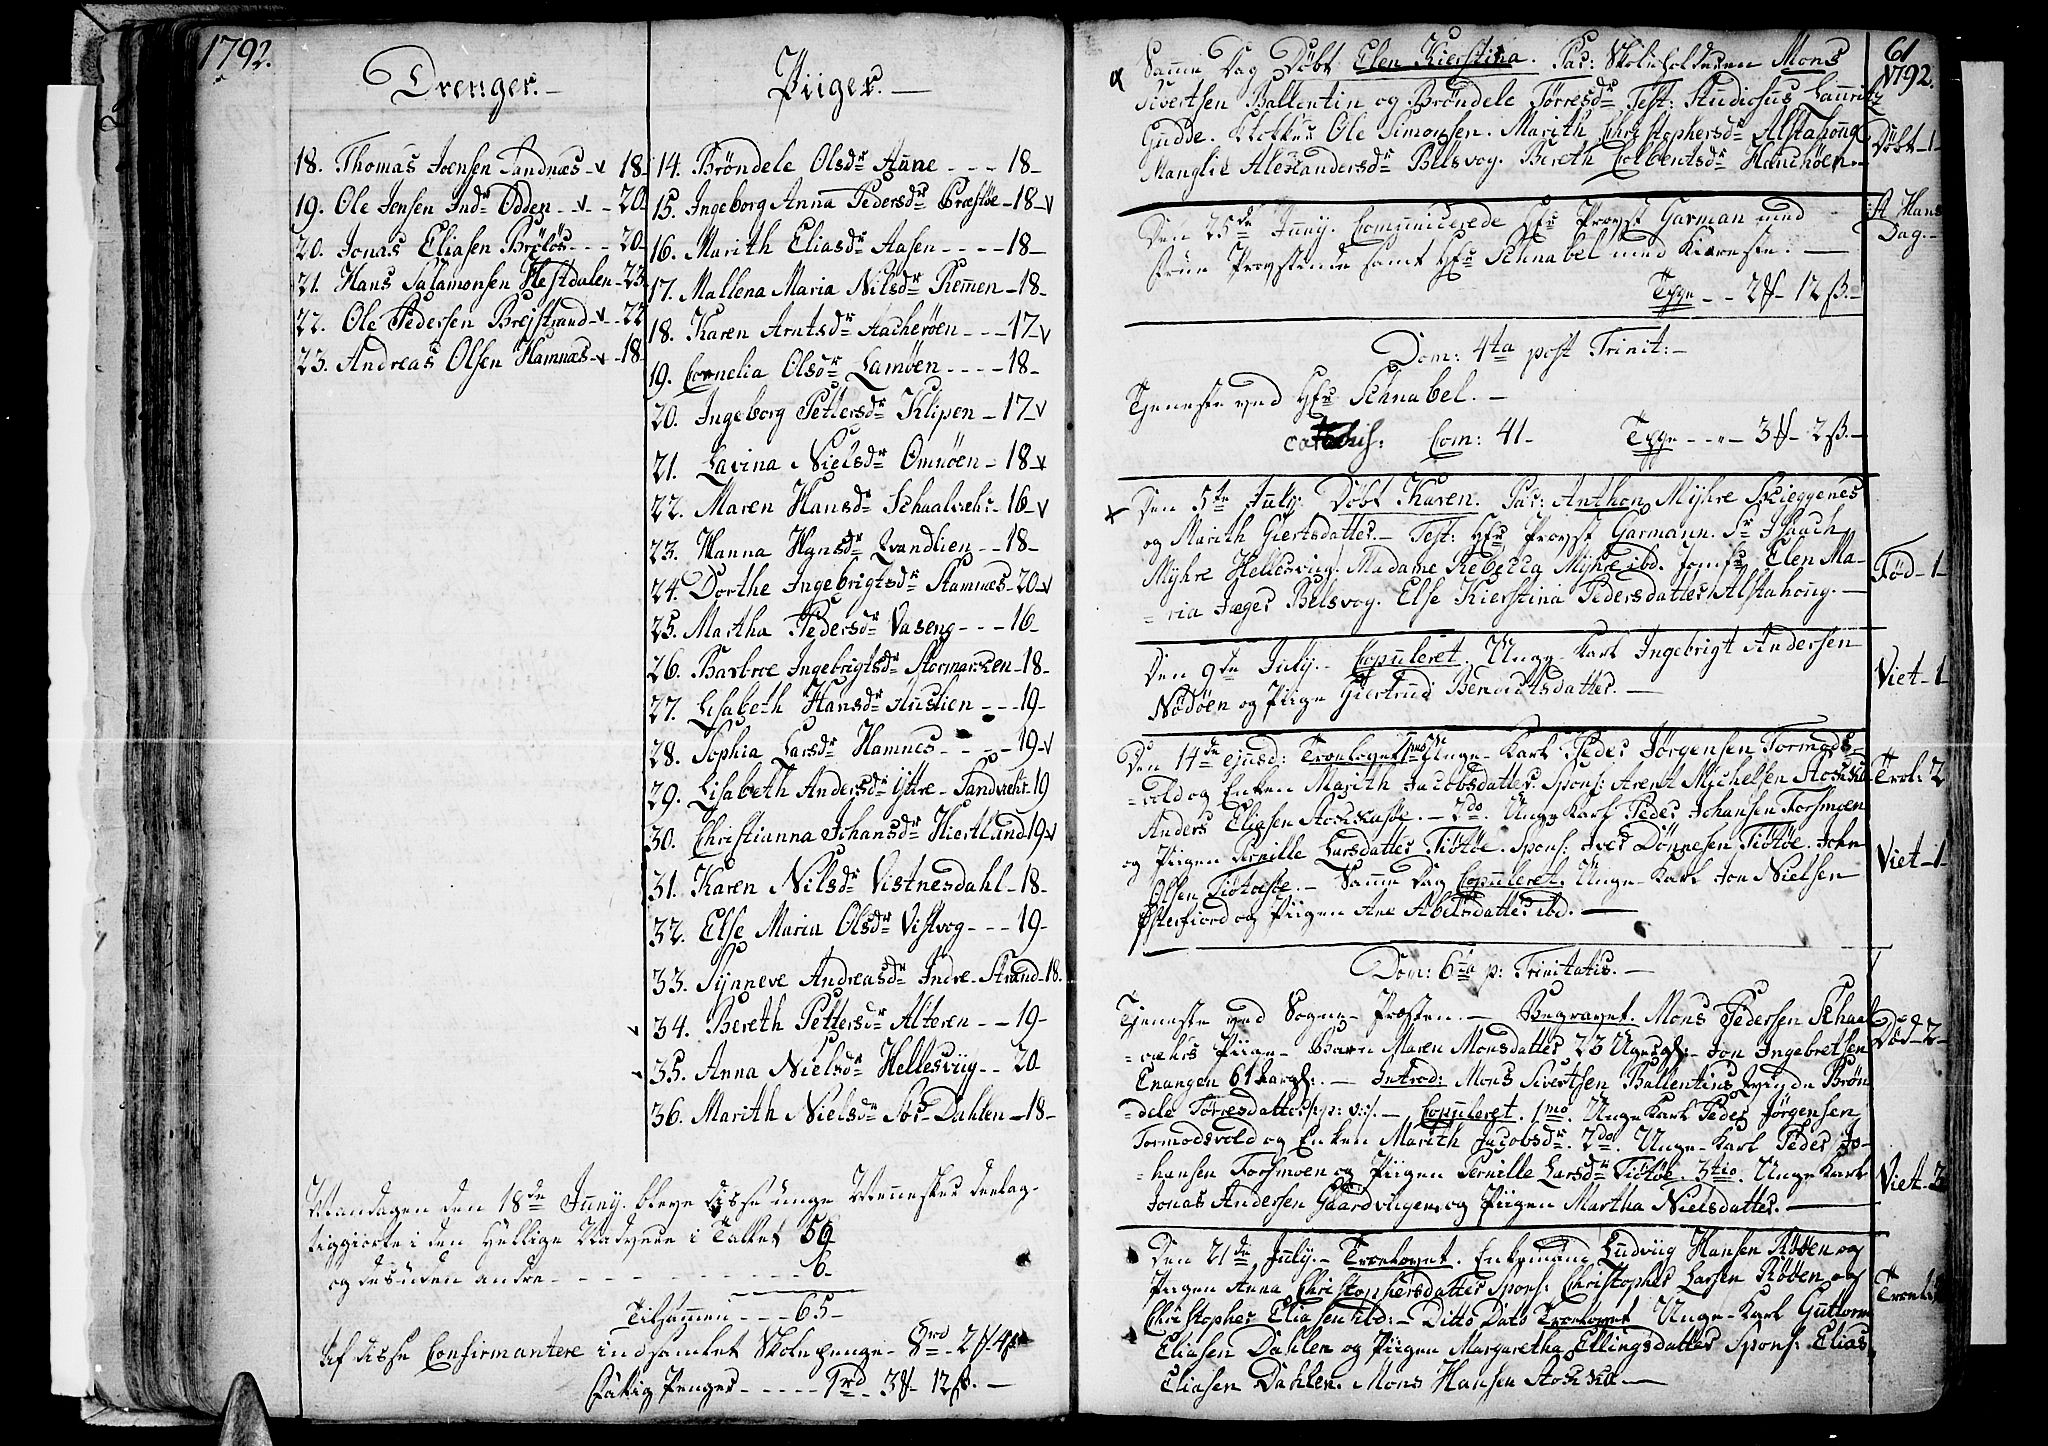 1792.
Drenger.
18. Thomas Joensen Sandnæs - v 18-
19. Ole Jensen Indr Odden - v - 20.
20. Jonas Eliasen Brøløs - - - 20-
21. Hans Salamonsen Hestdalen - 23.
22. Ole Pedersen Brejstrand - v - 22
23. Andreas Olsen Hamnæs - v - 18-
Piiger.
14. Brøndele Olsdr Aune - - - 18-
15. Ingeborg Anna Pedersdr Præstøe - 18 - v
16. Marith Eliasdr Aasen - - - - 18-
17. Mallena Maria Nilsdr Remen - 18-
18. Karen Arntsdr Aacherøen - - - 17 - v
19. Cornelia Olsdr Lamøen - - - - 18-
20. Ingeborg Pettersdr Klipen - 17 - v
21. Lavina Nielsdr Omnøen - 18 - v
22. Maren Hansdr Schaalvehr - 16 - v
23. Hanna Hansdr Qvandlien - - 18-
24. Dorthe Ingebrigtsdr Stamnæs - 20 - v
25. Martha Pedersdr Vaseng - - - 16-
26. Barbroe Ingebrigtsdr Stormarchen - 18-
27. Lisabeth Hansdr Huslien - - - 19-
28. Sophia Larsdr Hamnes - - - - 19 - v
29. Lisabeth Andersdr Ÿttre - Sandvehr - 19
30. Christianna Johansdr Hiertland 19 - v
31. Karen Nilsdr Vistnesdahl - 18-
32. Else Maria Olsdr Vistvog - - - 19-
33. Synneve Andreasdr Indre - Strand - 18.
34. Bereth Pettersdr Alteren - - 19-
35. Anna Nielsdr Hellesviig - - 20
36. Marith Nielsdr Sør - Dahlen - 18-
Mandagen den 18de Junÿ. bleve disse unge Mennesker deelag-
tiggiorte i den Hellige Nadvere i Tallet 59
og desuden andre - - - - - - - - - - - - 6-
Tilsammen - - - 65-
Af disse Confirmantere indsamlet Skolepenge - 8rd 2
Fattig Penger - - - - - 9rd 3 12 ß. -
61
1792.
Samme Dag Døbt Elen Kierstina. Par: Skoleholderen Mons
Sivertsen Ballentin og Brøndele Torresdr Test: Studiosus Lauritz
Gudde. Klokker Ole Simonsen. Marith Christophersdr Alstahoug
Manglie Alexandersdr Belsvog. Bereth Colbentsdr Hauchøen. -
Døbt - 1 -
Den 25de Junÿ. Communicerede Hr Provst Garman med
Frue Provstinde samt Hr Schnabel med Kiereste. -
St Hans
Dag. -
Tffr - - 2 12 ß. -
Dom: 4ta post Trinit: -
Tjeneste ved Hr Schnabel. -
Com: 41 - - - - 3 - 2 ß. -
Den 5te Julÿ. Døbt Karen. Par: Anthon Mÿhre Skieggenes
og Marith Giertsdatter. - Test: Hr Provst Garmann. Sr Isaach
Mÿhre Hellesviig. Madame Rebecca Mÿhre ibd. Jomfr Elen Ma-
- ria Jæger Belsvog. Else Kierstina Pedersdatter Alstahoug. -
Fød - 1 -
Den 9de Julÿ. - Copuleret. Unge - Karl Ingebrigt Andersen
Nødøen og Piige Giertrud Benoictsdatter. -
Viet - 1 -
Den 14de ejusd: Troelovet 1mo Unge - Karl Peder Jørgensen Tormods-
- vold og Enken Marith Jacobsdatter. Spons: Arent Michelsen
Anders Eliasen. - 2do. Unge Karl Peder Johansen Forsmoen
og Piigen Pernille Larsdatter Tiøtøe. Spons: Iver Dønnesen Tiøtøe. John
Olsen Tiøtøe. - Samme Dag Copuleret. Unge - Karl Jon Nielsen
Østerfiord og Piigen Ane Abelsdatter ibd. -
Trol: 2
Viet - 1 -
Dom: 6ta p: Trinitatis. -
Tjeneste ved Sogne - Præsten. - Begravet. Mons Pedersen Schaal-
- væhrs Piige - Barn Maren Monsdatter 23 Uger gl: - Jon Ingebretsen
Enangen 61 aar gl: - Introd: Mons Sivertsen Ballentins Brøn-
- dele Torresdatter. - Copuleret. 1mo. Unge Karl Peder Jørgensen
Tormodsvold og Enken Marith Jacobsdr. 2do. Unge - Karl Peder Jo-
- hansen Forsmoen og Piigen Pernille Larsdr Tiøtøe. 3tio. Unge Karl
Jonas Andersen og Piigen Martha Nielsdatter. -
Død - 2 -
Viet - 3
Den 21de Julÿ. - Troelovet. Enkemand Ludvig Hansen Røøen og
Piigen Anna Christophersdatter Spons: Christopher Larsen Røøen og
Christopher Eliasen ibd: - Ditto Dato Troelovet Unge - Karl Guttorm
Eliasen Dahlen og Piigen Margaretha Ellingsdatter Spons: Elias
Eliasen Dahlen. Mons Hansen